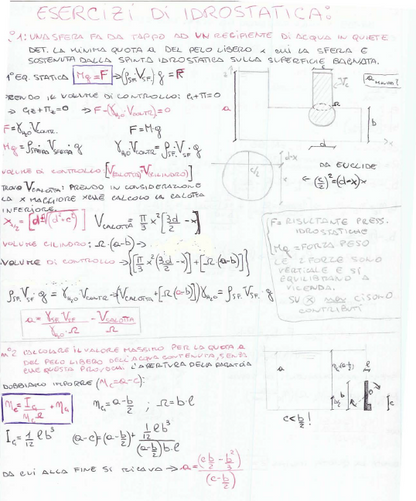 ESERCIZI DI IDROSTATICA:
n°1: UNA SFERA FA DA TAPPO AD UN RECIPIENTE DI ACQUA IN QUIETE
DET. LA MINIMA QUOTA a DEL PELO LIBERO x CUI LA SFERA È
SOSTENUTA DALLA SPINTA IDROSTATICA SULLA SUPERFICIE BAGNATA.
1° EQ. STATICA Mg = F → (ρsf. Vsf.) g = R
PRENDO IL VOLUME DI CONTROLLO: G+Π=0
→ Gz+Πz=0 → F-(γH2O VCONTR)=0
F=γH2O VCONTR. F=M·g
Mg = ρSFERA VSFERA · g γH2O VCONTR = ρSF. VSF. · g
VOLUME DI CONTROLLO [VCALOTTA + VCILINDRO]
TROVO VCALOTTA: PRENDO IN CONSIDERAZIONE
LA X MAGGIORE XCHÉ CALCOLO LA CALOTTA
INFERIORE.
x1/2 = [d±√(d²-c²)]/2 VCALOTTA = π/3 x² [3d/2 - x]
VOLUME CILINDRO: Ω·(a-b) →
VOLUME DI CONTROLLO → {π/3 x² [3d/2 - x]} + [Ω(a-b)]
ρSF. VSF. · g = γH2O VCONTR → (VCALOTTA + [Ω(a-b)]) γH2O = ρSF. VSF. g
a = γSF. VSF. / γH2O · Ω - VCALOTTA / Ω
a MINIMA!
DA EUCLIDE
→ (c/2)² = (d-x)x
F = RISULTANTE PRESS.
IDROSTATICHE
Mg = FORZA PESO
LE 2 FORZE SONO
VERTICALI E SI
EQUILIBRANO A
VICENDA.
CI SONO
CONTRIBUTI
n°2: CALCOLARE IL VALORE MASSIMO PER LA QUOTA a
DEL PELO LIBERO DELL'ACQUA CONTENUTA, SENZA
CHE QUESTA PROVOCHI L'APERTURA DELLA PARATOIA
DOBBIAMO IMPORRE (ηc=a-c):
ηG = a - b/2 ; Ω = b·l
IG = 1/12 l b³ (a-c) = (a - b/2) + 1/12 l b³ / (a - b/2) b·l
c < b/2 !
DA CUI ALLA FINE SI RICAVA → a = (cb/2 - b²/3) / (c - b/2)